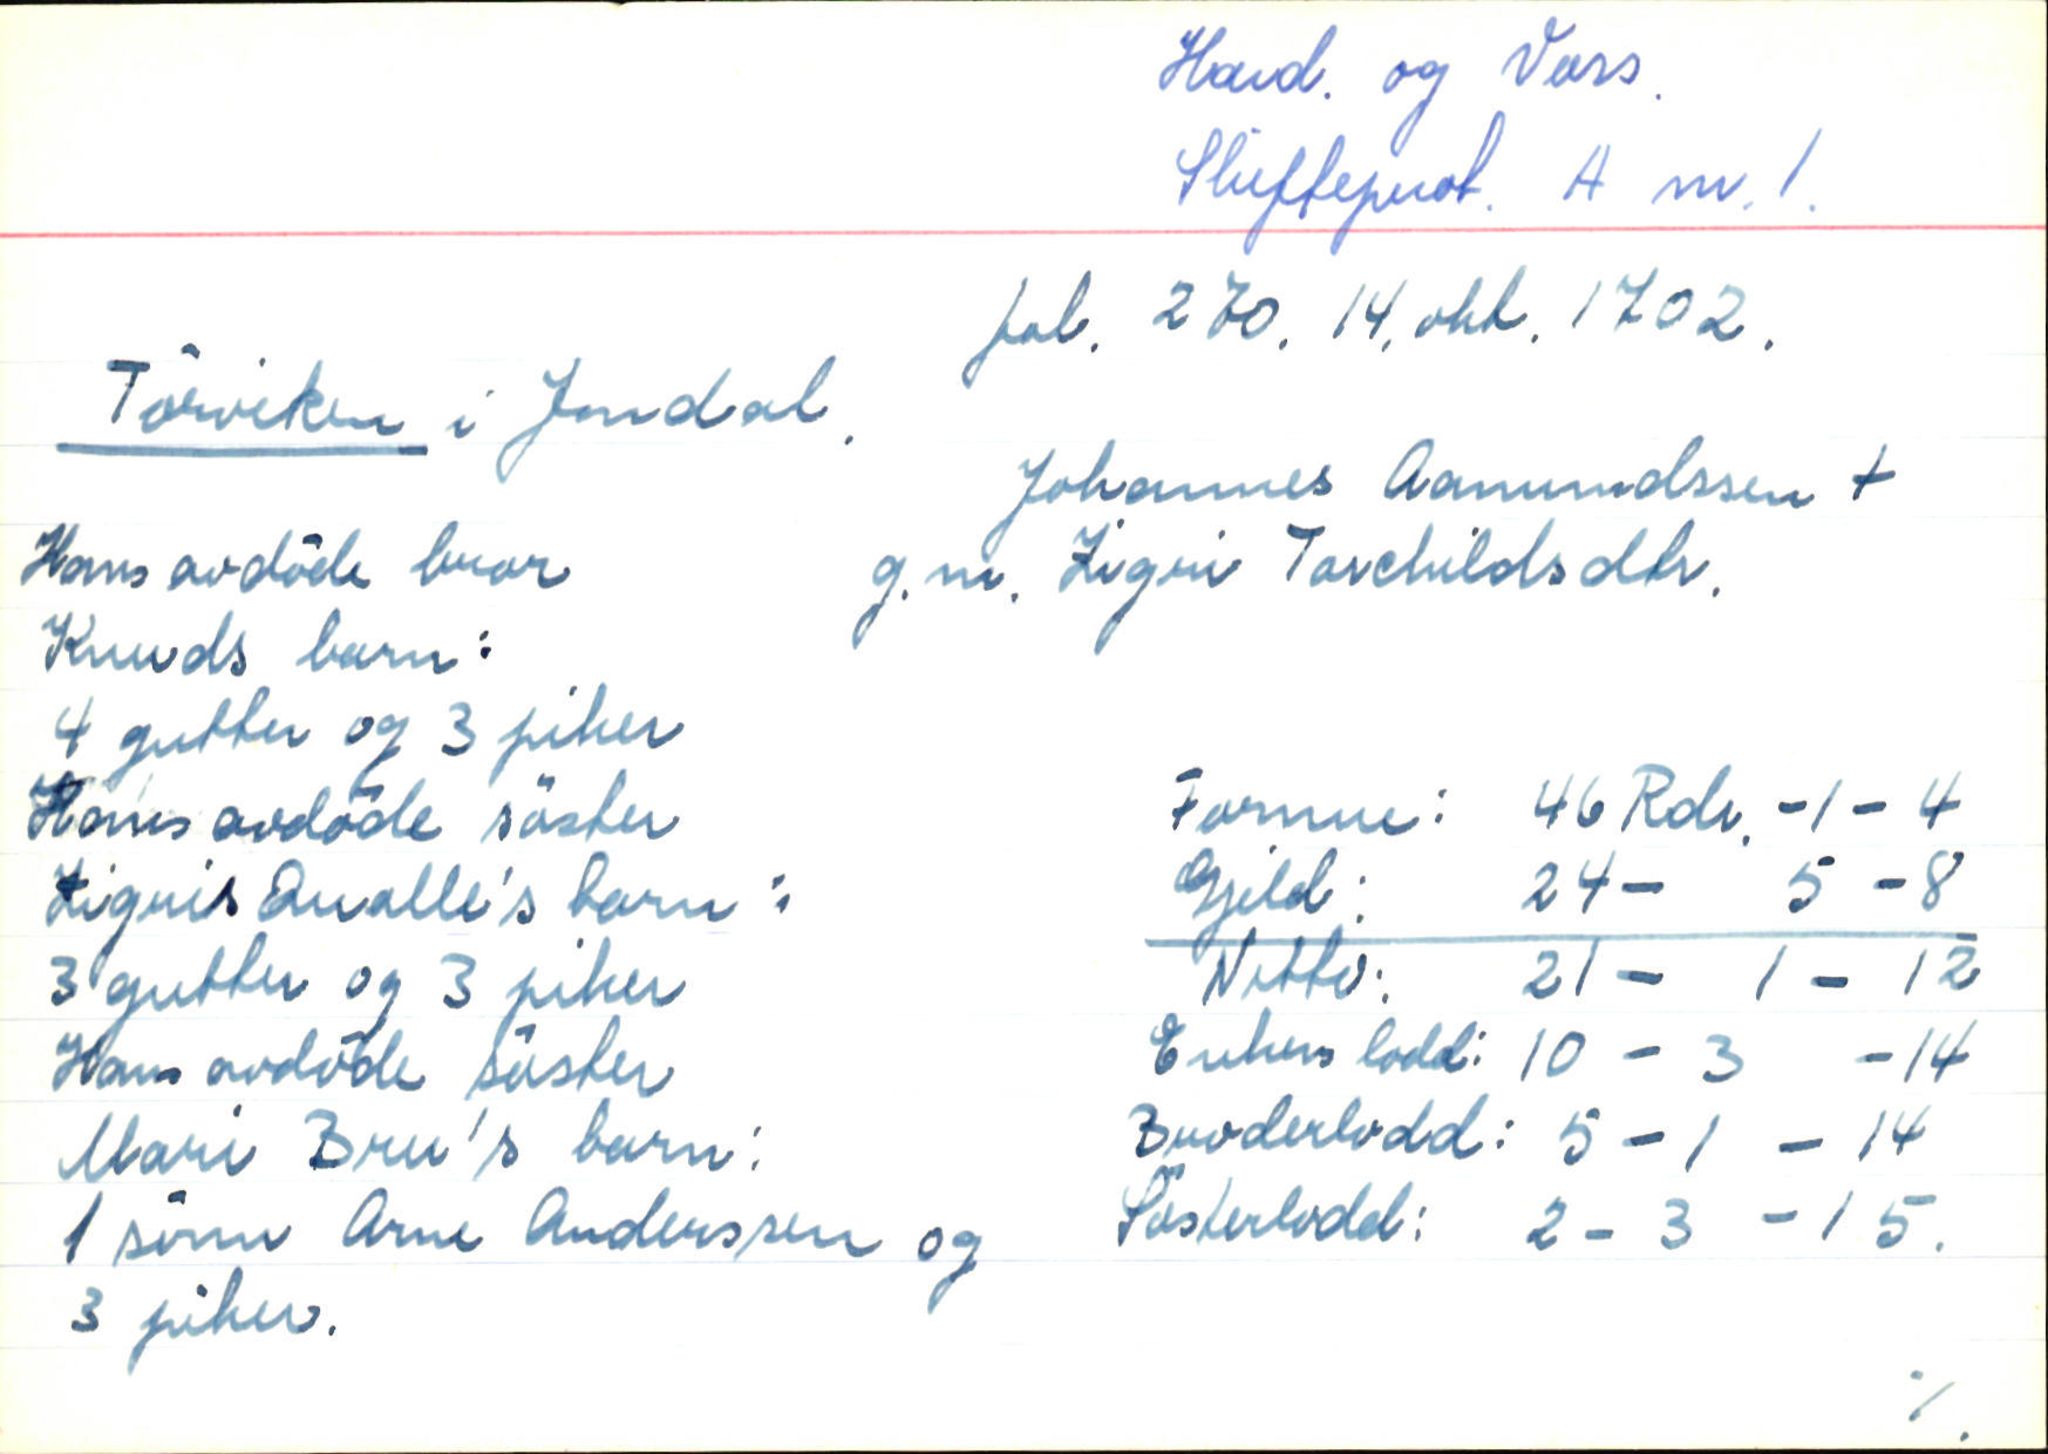 Hard. og Voss.
Skifteprot. A nr. 1.
fol. 270. 14. okt. 1702.
Törviken i Jondal.
Johannes Aamundssen +
g. m. Zigri Torchildsdtr.
Hans avdöde bror
Knuds barn:
4 gutter og 3 piker
Hans avdöde söster
Zigris Qualle's barn:
3 gutter og 3 piker
Hans avdöde söster
Mari Bru's barn:
1 sönn Arne Anderssen og
3 piker.
Formue: 46 Rdr. - 1 - 4
Gjeld: 24 - 5 - 8
Netto: 21 - 1 - 12
Enkens lodd: 10 - 3 - 14
Broderlodd: 5 - 1 - 14
Sösterlodd: 2 - 3 - 15.
./.